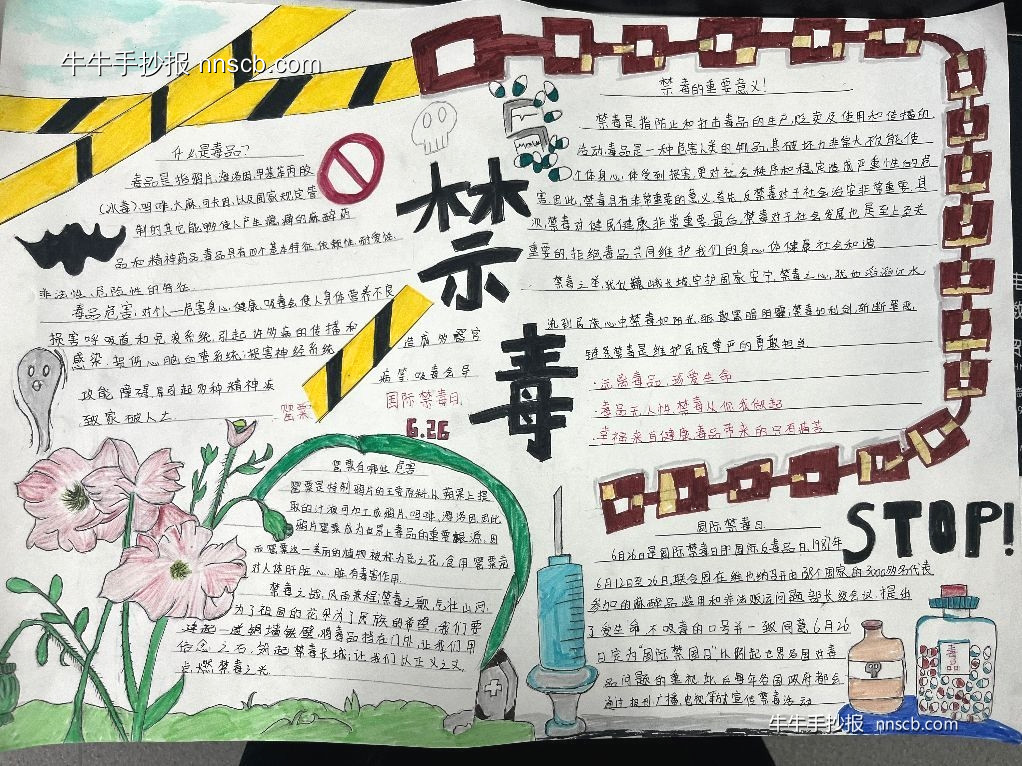 牛牛手抄报 nnscb.com
什么是毒品?
毒品是指鸦片,海洛因,甲基苯丙胺
(冰毒),吗啡,大麻,可卡因,以及国家规定管
制的其它能够使人产生瘾,癖的麻醉药
品和精神药品,毒品具有四个基本特征,依赖性,耐受性,
非法性,危险性的特征.
毒品危害,对个人—危害身心健康,吸毒会使人身体营养不良
损害呼吸道和免疫系统,引起许多病的传播和
感染,损伤心脑血管系统;损害神经系统
造成多器官
功能障碍,易引起多种精神疾
病等,吸毒会导
致家破人亡.
罂粟
国际禁毒日
6.26
禁毒
禁毒的重要意义!
禁毒是指防止和打击毒品的生产,贩卖及使用和传播的
活动.毒品是一种危害人类的物品,其破坏力非常大,不仅能使
个体身心体受到损害,更对社会秩序和稳定造成严重性的危
害.因此,禁毒具有非常重要的意义.首先,反禁毒对于社会治安非常重要.其
次,禁毒对健民健康非常重要.最后,禁毒对于社会发展也是至上至关
重要的,拒绝毒品共同维护我们的身心体健康社会和谐
禁毒之举,犹如巍峨长城守护国家安宁,禁毒之心,犹如滔滔江水,
流到民族心中禁毒如阳光,驱散黑暗阴霾,禁毒如利剑,斩断罪恶,
链条禁毒是维护民族尊严的勇敢担当
·远离毒品,珍爱生命
·毒品无人性,禁毒从你我做起
·幸福来自健康,毒品带来的只有痛苦
罂粟有哪些危害
罂粟是特制鸦片的主要原料,从蒴果上提
取的汁液可加工成鸦片,吗啡,海洛因,因此
鸦片罂粟成为世界上毒品的重要根源,因
而罂粟这一美丽的植物被称为恶之花,食用罂粟壳
对人体肝脏,心脏有毒害作用.
禁毒之战,风雨兼程;禁毒之歌,气壮山河.
为了祖国的花朵为了民族的希望,我们要
筑起一道铜墙铁壁,将毒品挡在门外,让我们用
信念之石,筑起禁毒长城;让我们以正义之火,
点燃禁毒之光.
STOP!
国际禁毒日
6月26日是国际禁毒日即国际反毒品日,1987年
6月12日至26日,联合国在维也纳召开由138个国家的3000多名代表
参加的麻醉品滥用和非法贩运问题部长级会议,提出
了爱生命,不吸毒的口号并一致同意6月26
日定为"国际禁毒日"以引起世界各国对毒
品问题的重视,此后每年各国政府都会
通过报刊广播,电视,等方宣传禁毒活动
毒品
牛牛手抄报 nnscb.com